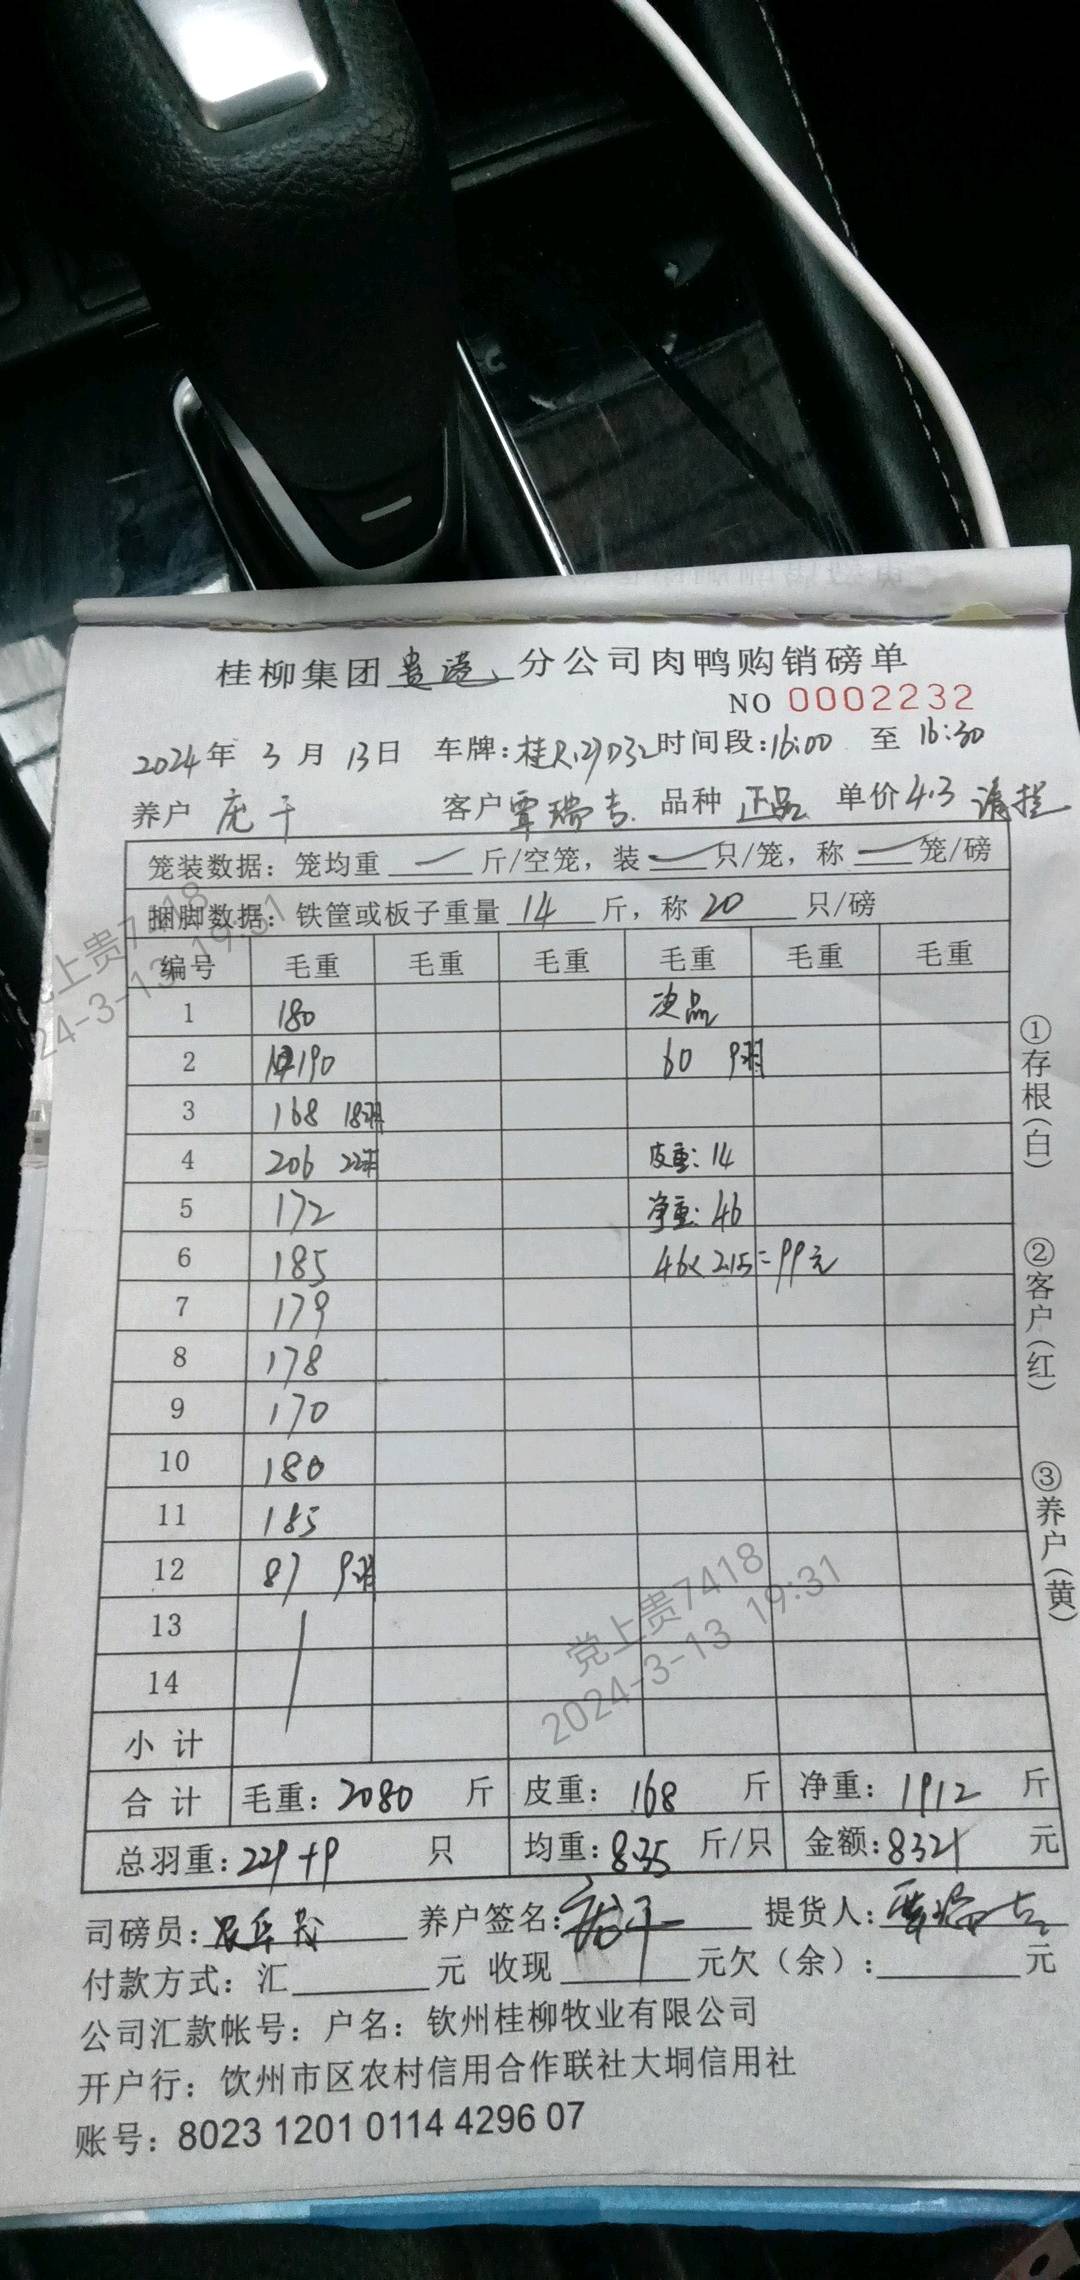 桂柳集团贵港分公司肉鸭购销磅单
NO 0002232
2024年 3月 13日 车牌:桂R·27D32 时间段:16:00 至 16:30
养户 庞干 客户 覃瑞吉 品种 正品 单价4.3
笼装数据：笼均重 — 斤/空笼，装 — 只/笼，称 — 笼/磅
捆脚数据：铁筐或板子重量 14 斤，称 20 只/磅
编号 毛重 毛重 毛重 毛重 毛重 毛重
1 180 次品
2 190 60 9羽
3 168 18羽
4 206 22羽 皮重：14
5 172 净重：46
6 185 46×2.15=99元
7 179
8 178
9 170
10 180
11 185
12 87 9羽
13
14
小计
合计 毛重：2080 斤 皮重：168 斤 净重：1912 斤
总羽重：229+9 只 均重：8.35 斤/只 金额：8321 元
司磅员： 养户签名：庞干 提货人：覃瑞吉
付款方式：汇 元 收现 元欠（余）： 元
公司汇款帐号：户名：钦州桂柳牧业有限公司
开户行：饮州市区农村信用合作联社大垌信用社
账号：8023 1201 0114 4296 07
①存根（白）
②客户（红）
③养户（黄）
党上贵7418
2024-3-13 19:31
上贵7418
24-3-13 19:31